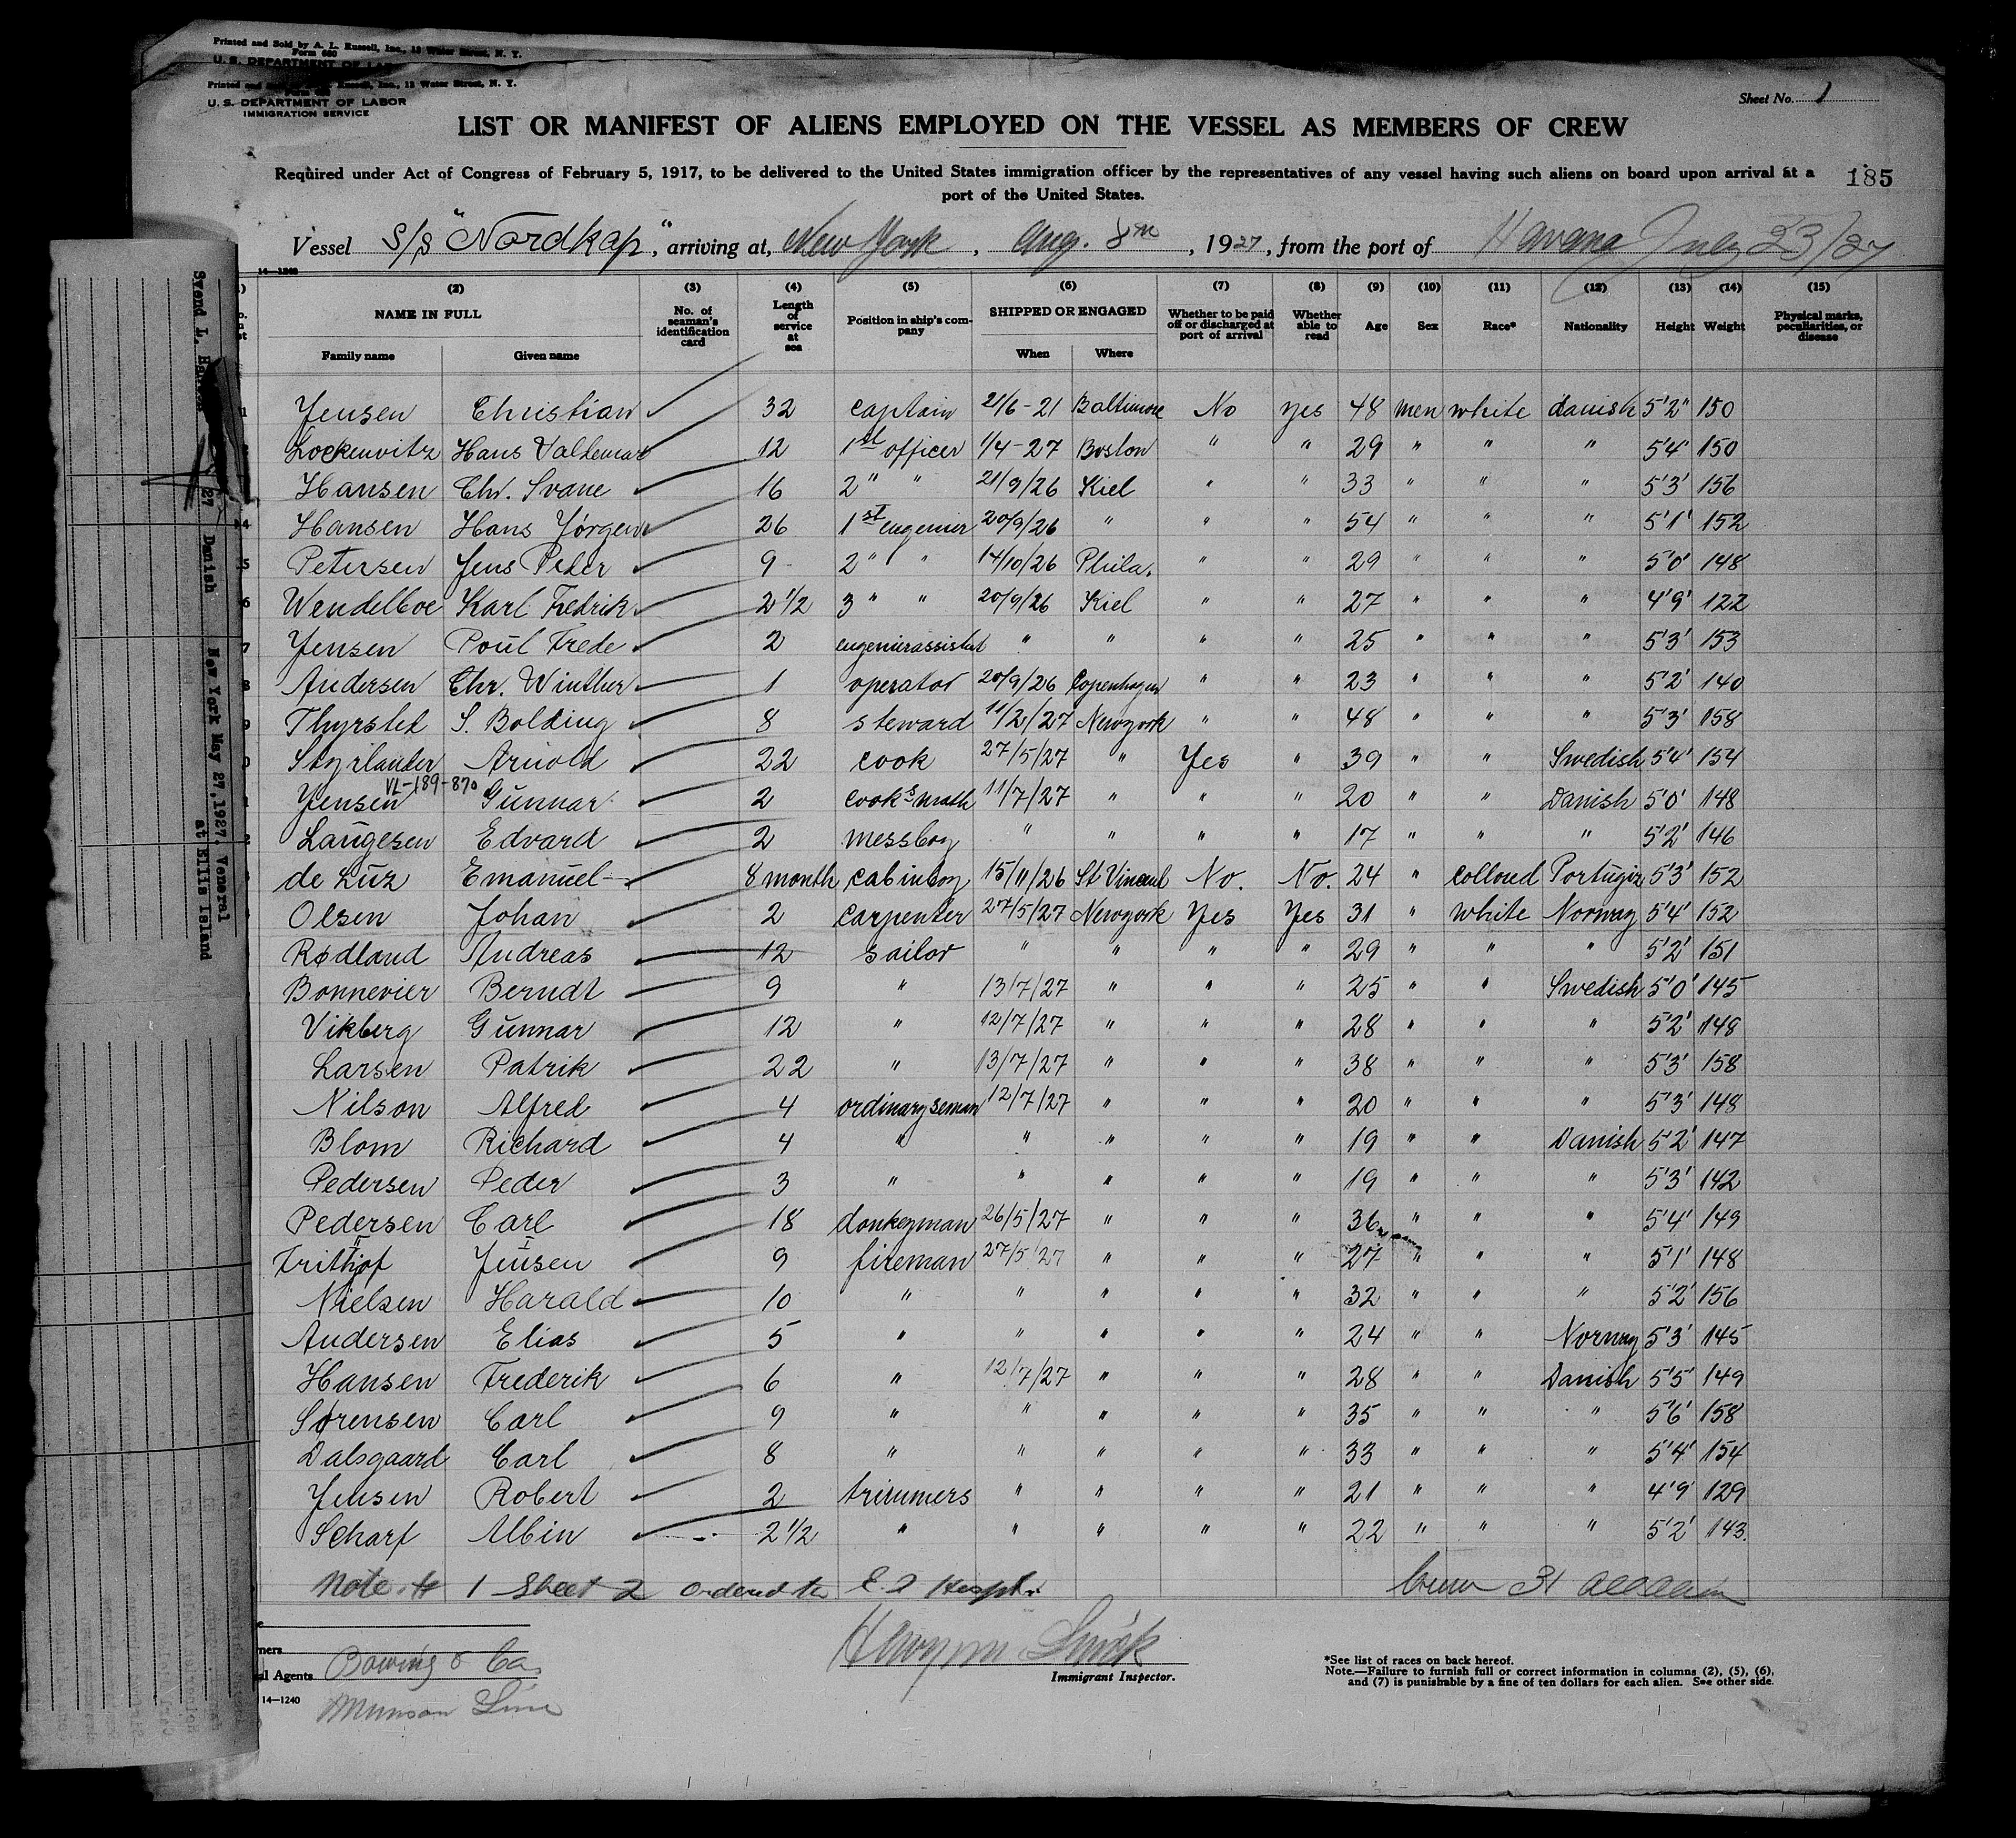 Printed and Sold by A. L. Russell, Inc., 13 Water Street, N. Y.
Form 680
U. S. DEPARTMENT OF LA
Printed and Russell, Inc., 13 Water Street, N. Y.
U. S. DEPARTMENT OF LABOR
IMMIGRATION SERVICE
Sheet No. 1
LIST OR MANIFEST OF ALIENS EMPLOYED ON THE VESSEL AS MEMBERS OF CREW
Required under Act of Congress of February 5, 1917, to be delivered to the United States immigration officer by the representatives of any vessel having such aliens on board upon arrival at a
port of the United States.
185
Vessel S/S "Nordkap", arriving at, New York, Aug. 8th, 1927, from the port of Havana July 23/27
14—1240
(2) (3) (4) (5) (6) (7) (8) (9) (10) (11) (12) (13) (14) (15)
NAME IN FULL No. of seaman's identification card Length of service at sea Position in ship's company SHIPPED OR ENGAGED Whether to be paid off or discharged at port of arrival Whether able to read Age Sex Race* Nationality Height Weight Physical marks, peculiarities, or disease
Family name Given name When Where
Jensen Christian 32 captain 21/6-21 Baltimore No yes 48 men white danish 5'2" 150
Lockenvitz Hans Valdemar 12 1st officer 1/4-27 Boston " " 29 " " " 5'4' 150
Hansen Chr. Svane 16 2" " 21/9/26 Kiel " " 33 " " " 5'3' 156
4 Hansen Hans Jörgen 26 1st eugenier 20/9/26 " " " 54 " " " 5'1' 152
5 Petersen Jens Peter 9 2" " 14/10/26 Phila. " " 29 " " " 5'0' 148
6 Wendelboe Karl Fredrik 2 1/2 3" " 20/9/26 Kiel " " 27 " " " 4'9' 122
7 Jensen Poul Frede 2 eugenierassistent " " " " 25 " " " 5'3' 153
8 Andersen Chr. Winther 1 operator 20/9/26 Copenhagen " " 23 " " " 5'2' 140
9 Thyrsted S. Bolding 8 steward 11/2/27 Newyork " " 48 " " " 5'3' 158
Styrlander Arnold 22 cook 27/5/27 " Yes " 39 " " Swedish 5'4' 154
VL-189-870
Jensen Gunnar 2 cook's math 11/7/27 " " " 20 " " Danish 5'0' 148
Laugesen Edvard 2 messboy " " " " 17 " " " 5'2' 146
de Luz Emanuel 8 month cabinboy 15/11/26 St Vincent No. No. 24 " colloued Portugiz 5'3' 152
Olsen Johan 2 carpenter 27/5/27 Newyork Yes Yes 31 " White Norway 5'4' 152
Rødland Andreas 12 sailor " " " " 29 " " " 5'2' 151
Bonnevier Berndt 9 " 13/7/27 " " " 25 " " Swedish 5'0' 145
Vikberg Gunnar 12 " 12/7/27 " " " 28 " " " 5'2' 148
Larsen Patrik 22 " 13/7/27 " " " 38 " " " 5'3' 158
Nilson Alfred 4 ordinary seman 12/7/27 " " " 20 " " " 5'3' 148
Blom Richard 4 " " " " " 19 " " Danish 5'2' 147
Pedersen Peder 3 " " " " " 19 " " " 5'3' 142
Pedersen Carl 18 donkeyman 26/5/27 " " " 36 " " " 5'4' 149
II I
Frithjof Jensen 9 fireman 27/5/27 " " " 27 " " " 5'1' 148
Nielsen Harald 10 " " " " " 32 " " " 5'2' 156
Andersen Elias 5 " " " " " 24 " " Norway 5'3' 145
Hansen Frederik 6 " 12/7/27 " " " 28 " " Danish 5'5' 149
Sørensen Carl 9 " " " " " 35 " " " 5'6' 158
Dalsgaard Carl 8 " " " " " 33 " " " 5'4' 154
Jensen Robert 2 trimmers " " " " 21 " " " 4'9' 129
Scharf Albin 2 1/2 " " " " " 22 " " " 5'2' 143
Note 1 Sheet 2 ordered to E. I Hospt. Crew 31 all alien
ners
al Agents Bowring & Co.
Munson Line
14—1240
Immigrant Inspector.
*See list of races on back hereof.
Note.—Failure to furnish full or correct information in columns (2), (5), (6),
and (7) is punishable by a fine of ten dollars for each alien. See other side.
Svend L. 27 Danish New York May 27, 1927. Veneral
at Ellis Island